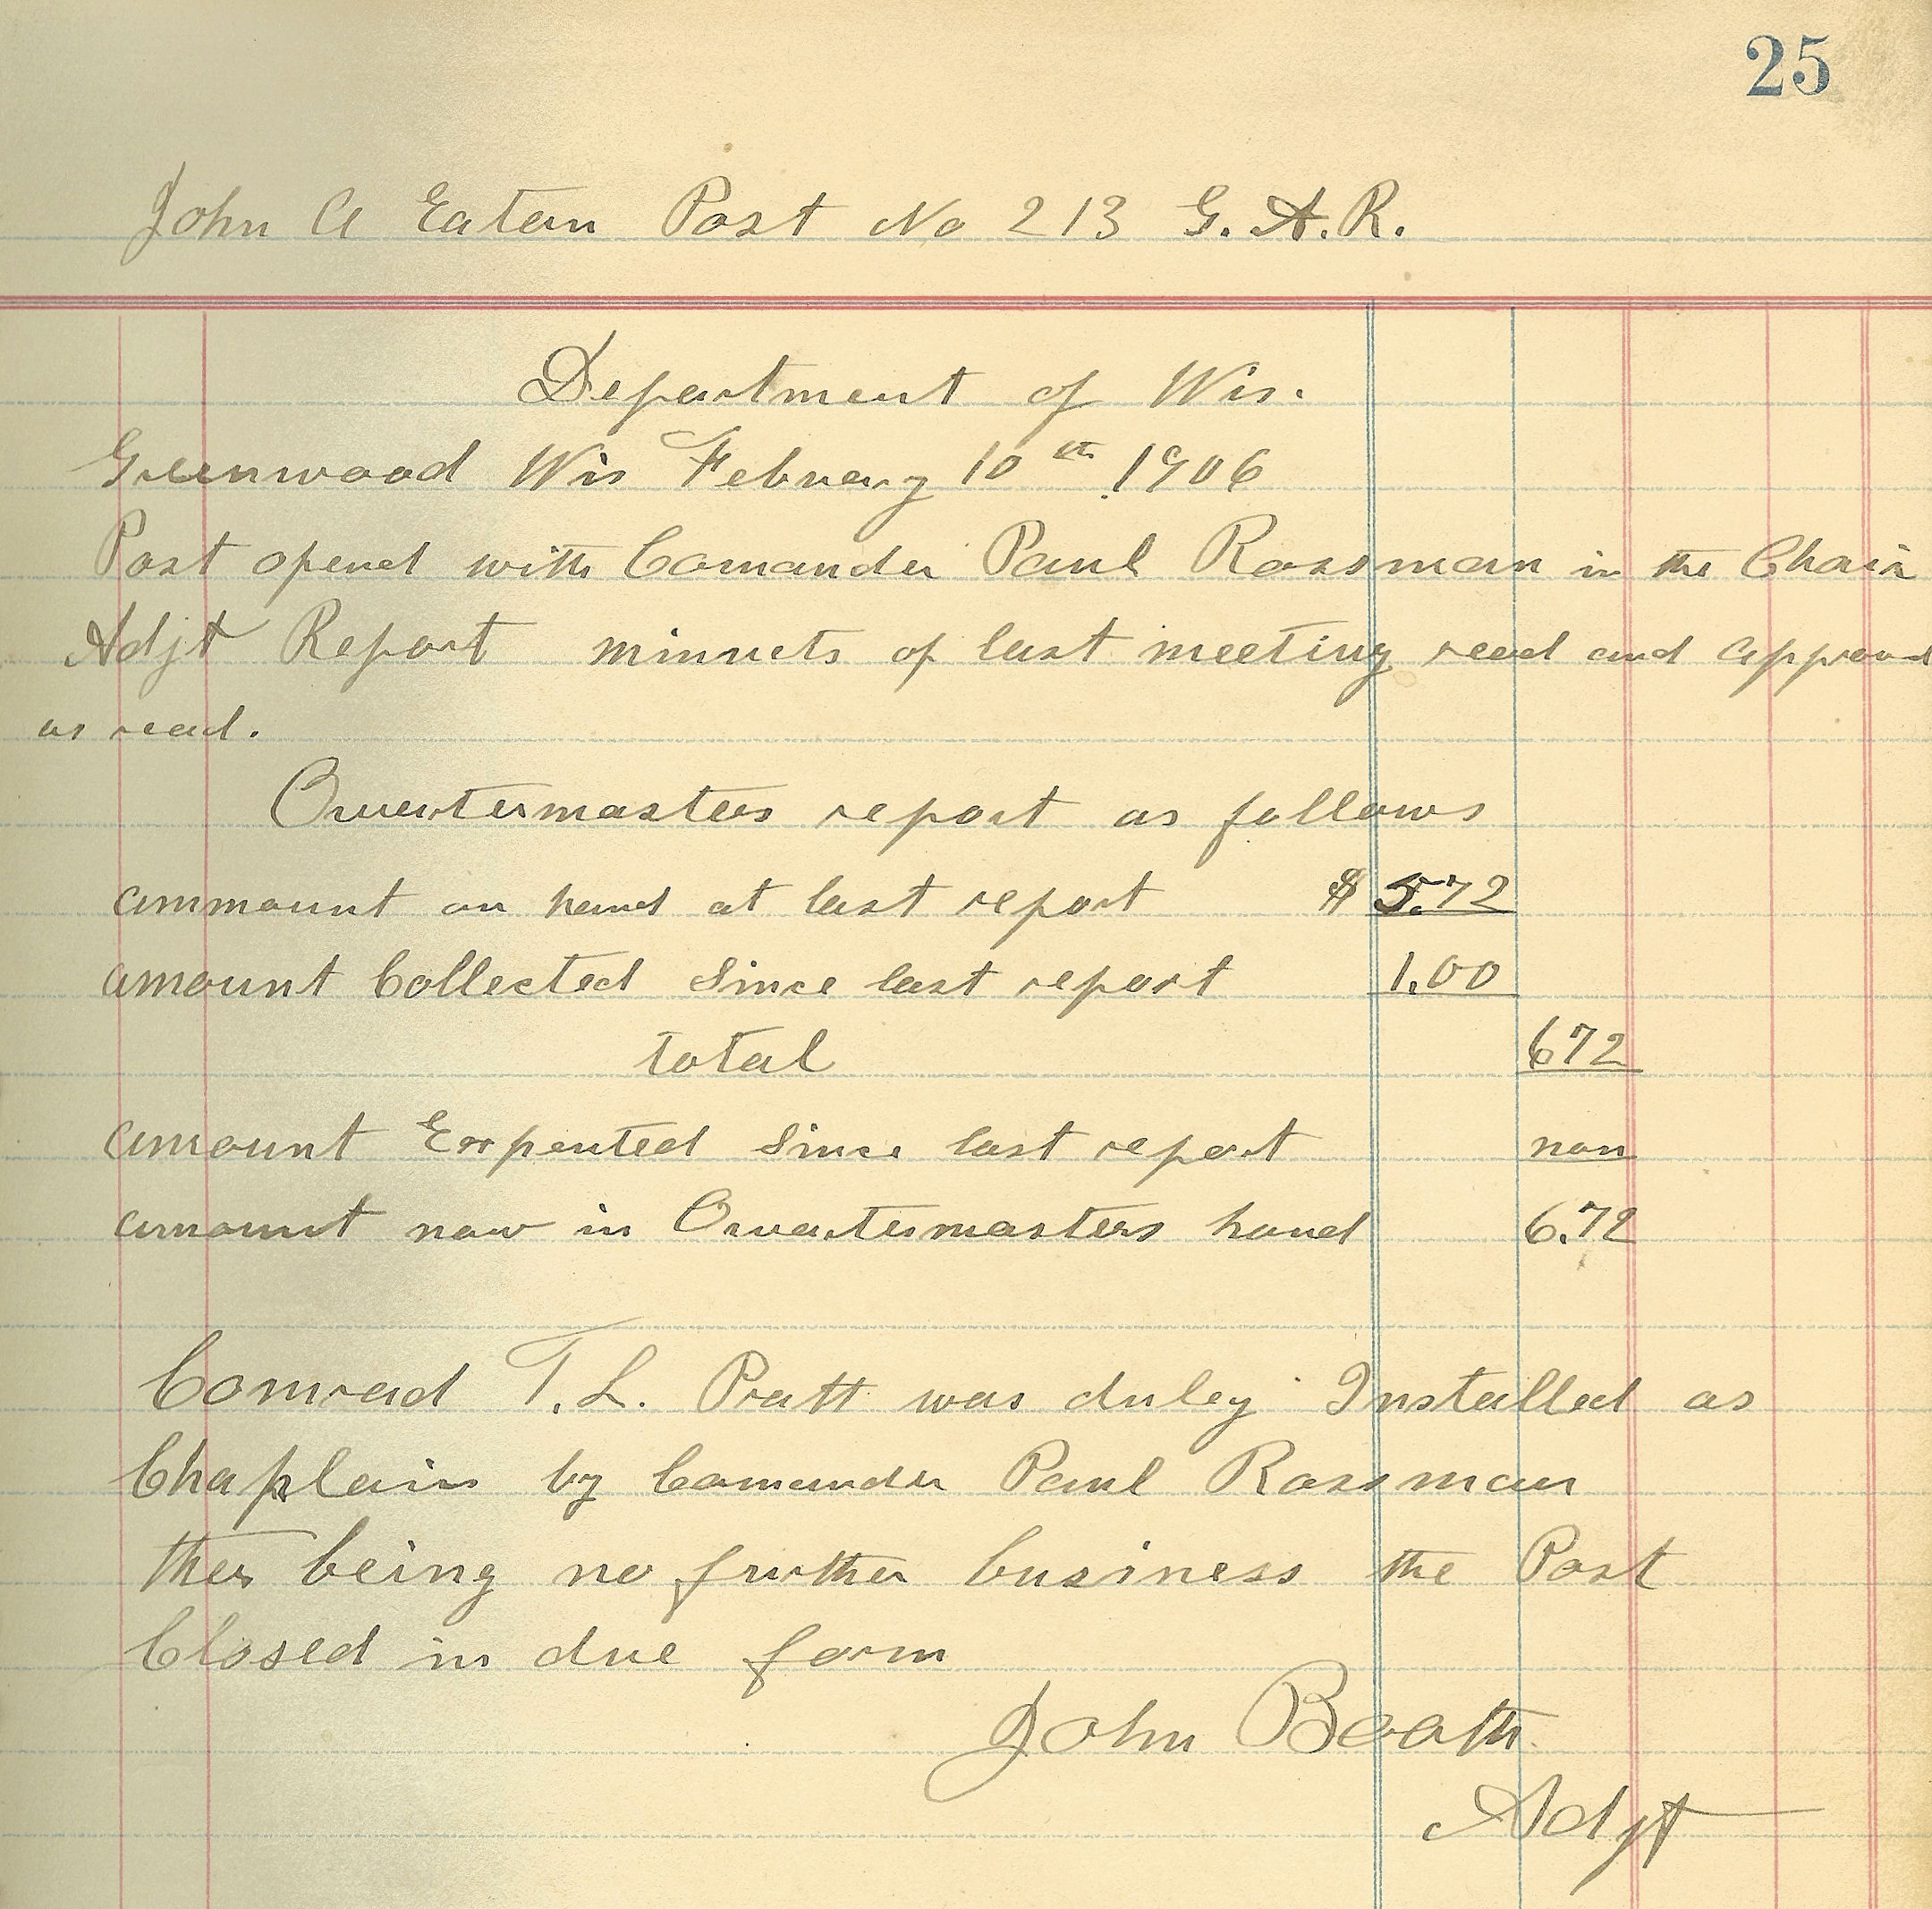 25
John A Eaton Post No 213 G.A.R.
Department of Wis.
Greenwood Wis February 10th 1906
Post opend with Comander Paul Rossman in the Chair
Adjt Report minnets of last meeting read and approvd
as read.
Quartermasters report as follows
ammount on hand at last report $ 5.72
amount Collected Since last report 1.00
total 672
amount Expented Since last report non
amount now in Quartermasters hand 6.72
Comrad T.L. Pratt was duley Installed as
Chaplain by Comander Paul Rossman
ther being no further business the Post
Closed in due form
John Booth
Adjt